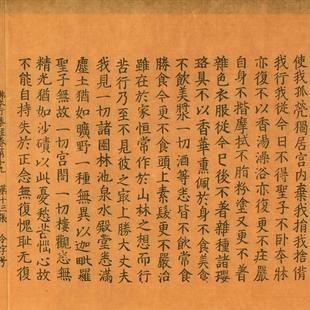 使我孤煢獨居宮內棄我捐我捨背
我行我從今日不得聖子不卧本牀
亦復不以香湯澡浴亦復更不莊嚴
自身不揩摩拭不脂粉塗又更不著
雜色衣服從今已後不着雜種諸瓔
珞具不以香華熏佩於身不食美食
不飲美漿一切酒等悉皆不飲不食
勝食今更不食頭上素髮更不嚴治
雖在於家恒常作於山林之想而行
苦行乃至不見彼之寂上勝大丈夫
我見一切諸園林池泉水殿堂悉滿
塵土猶如曠野一種無異以迦毗羅
聖子無故一切宮閤一切樓觀悉無
精光猶如沙磧以此憂愁苦惱心故
不能自持失於正念無復愧恥无復
佛本行集經卷第十九 第十三張 令字号